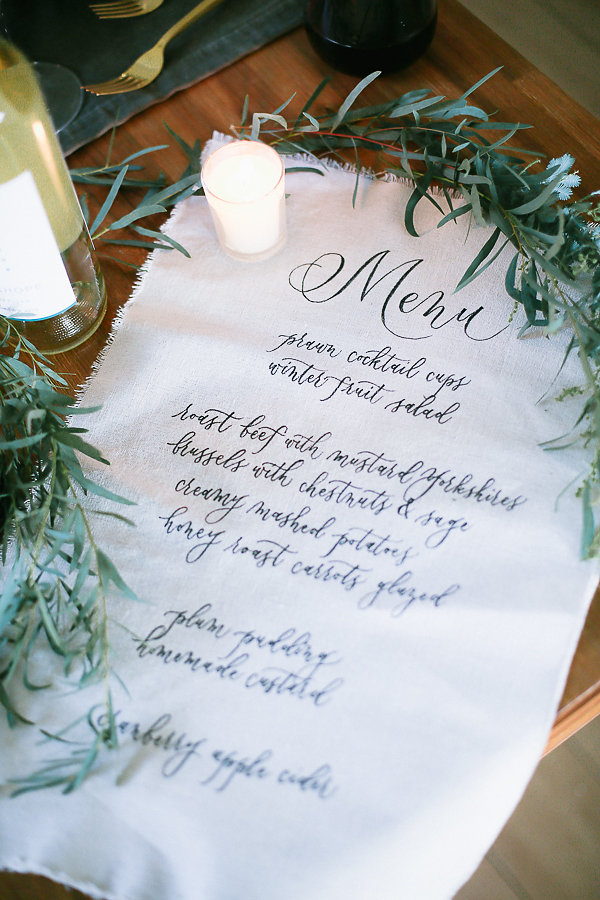 Menu
prawn cocktail cups
winter fruit salad
roast beef with mustard Yorkshires
brussels with chestnuts & sage
creamy mashed potatoes
honey roast carrots glazed
plum pudding
homemade custard
cranberry apple cider